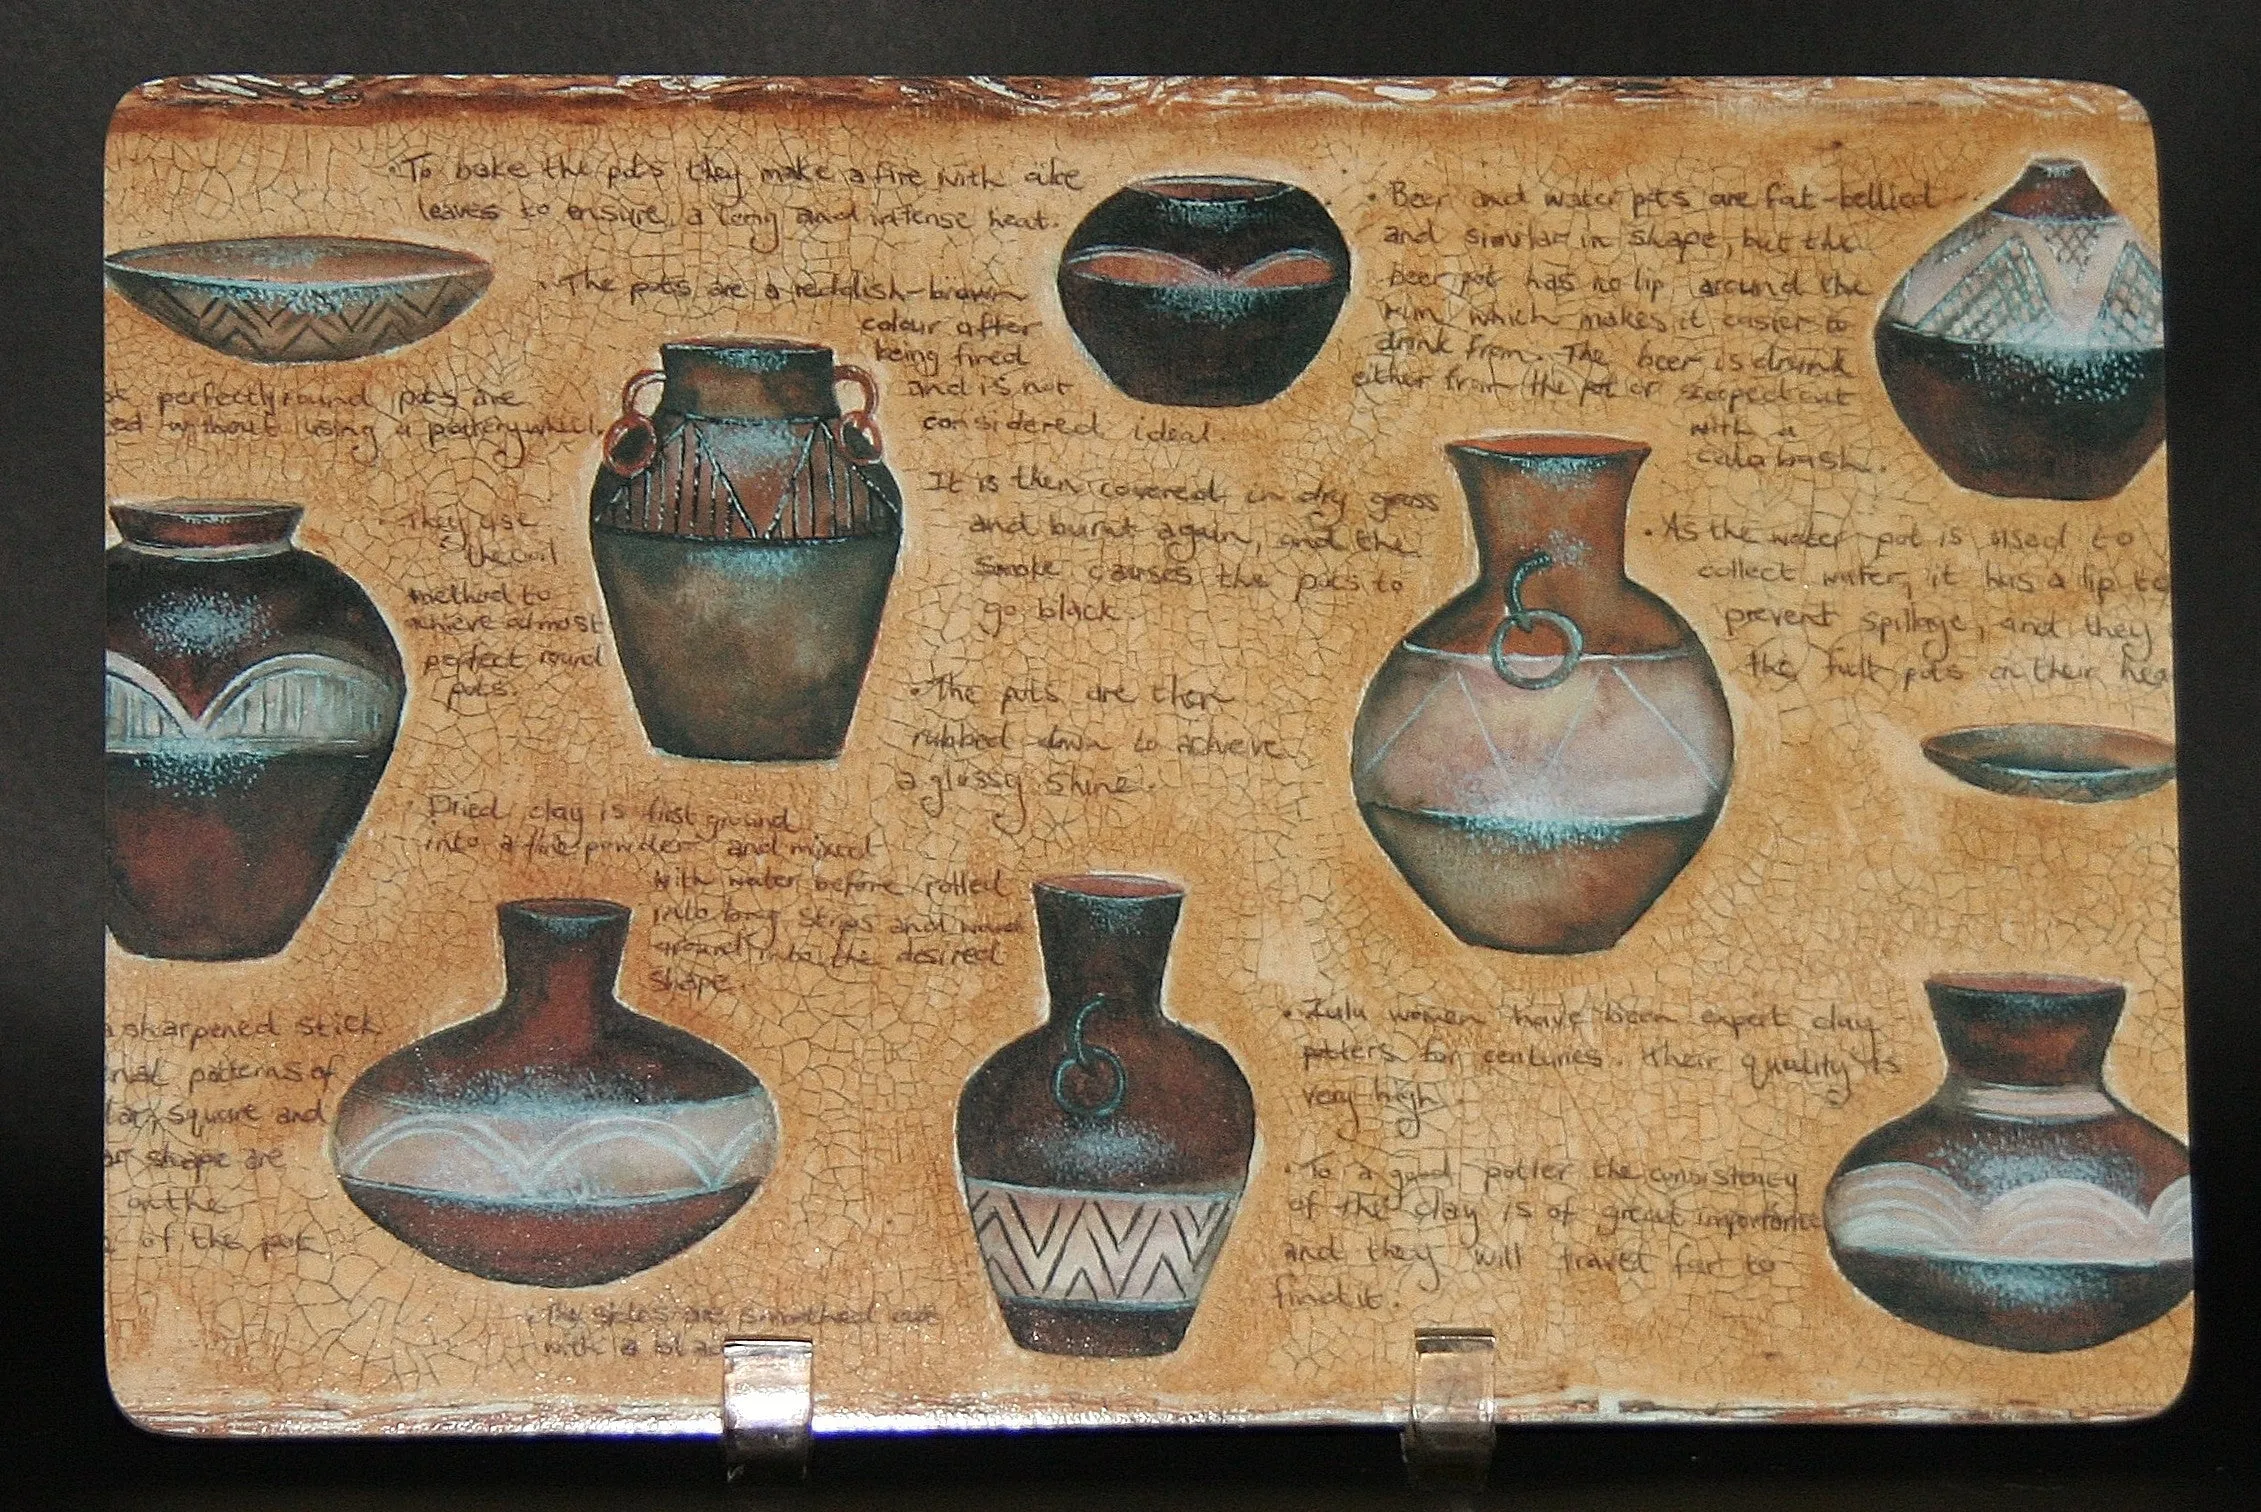 • To bake the pots they make a fire with
leaves to ensure a long and intense heat.
• The pots are a reddish-brown
colour after
being fired
and is not
considered ideal.
perfectly round pots are
ed without using a pottery wheel.
• They use
the coil
method to
achieve almost
perfect round
pots.
It is then covered in dry grass
and burnt again, and the
smoke causes the pots to
go black.
• The pots are then
rubbed down to achieve
a glossy shine.
• Dried clay is first ground
into a fine powder and mixed
with water before rolled
into long strips and wound
around into the desired
shape.
a sharpened stick
patterns of
lar, square and
ar shape are
on the
of the pot
• The sides are smoothed out
with a bla
• Beer and water pots are fat-bellied
and similar in shape, but the
beer pot has no lip around the
rim which makes it easier to
drink from. The beer is drunk
either from the pot or scooped out
with a
calabash.
• As the water pot is used to
collect water, it has a lip to
prevent spillage, and they
the full pots on their hea
• Zulu women have been expert clay
potters for centuries. Their quality is
very high.
• To a good potter the consistency
of the clay is of great importance
and they will travel far to
find it.